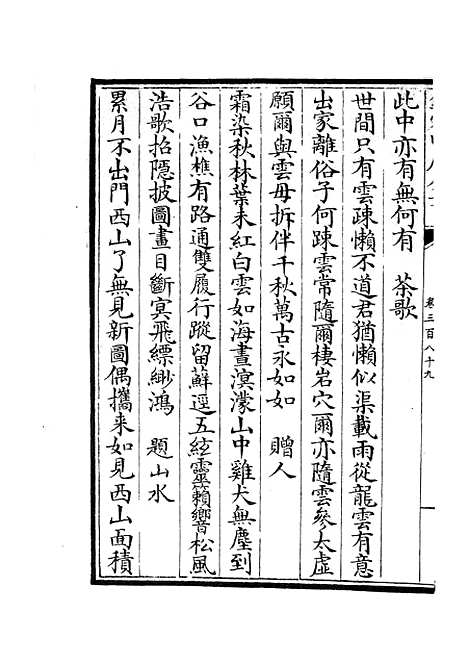 卷三百八十九
此中亦有無何有　茶歌
世間只有雲疎懶不道君猶懶似渠載雨從龍雲有意
出家離俗子何踈雲常隨爾棲岩穴爾亦隨雲參太虛
願爾與雲毋拆伴千秋萬古永如如　贈人
霜染秋林葉未紅白雲如海晝溟濛山中雞犬無塵到
谷口漁樵有路通雙履行蹤留蘚逕五絃靈籟響松風
浩歌招隱披圖畫目斷冥飛縹緲鴻　題山水
累月不出門西山了無見新圖偶攜來如見西山面積